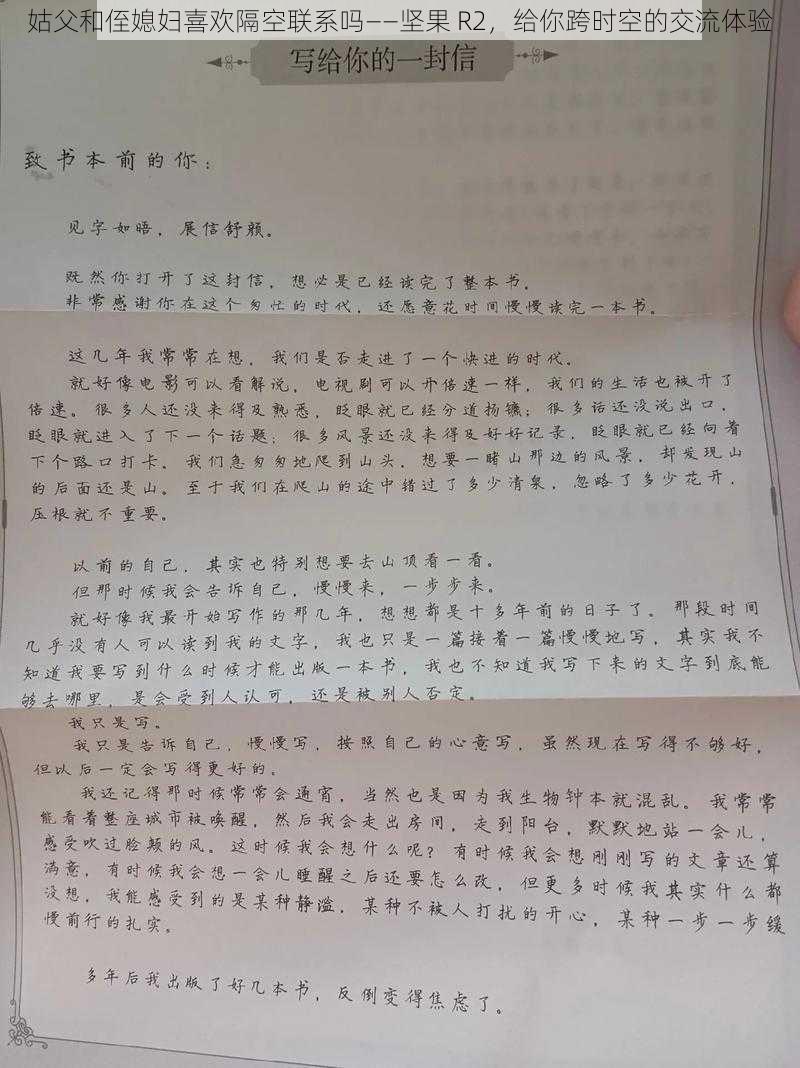 姑父和侄媳妇喜欢隔空联系吗——坚果 R2，给你跨时空的交流体验
写给你的一封信
致书本前的你：
见字如晤，展信舒颜。
既然你打开了这封信，想必是已经读完了整本书。
非常感谢你在这个匆忙的时代，还愿意花时间慢慢读完一本书。
这几年我常常在想，我们是否走进了一个快进的时代。
就好像电影可以看解说，电视剧可以开倍速一样，我们的生活也被开了
倍速。很多人还没来得及熟悉，眨眼就已经分道扬镳；很多话还没说出口，
眨眼就进入了下一个话题；很多风景还没来得及好好记录，眨眼就已经向着
下个路口打卡。我们急匆匆地爬到山头，想要一睹山那边的风景，却发现山
的后面还是山。至于我们在爬山的途中错过了多少清泉，忽略了多少花开，
压根就不重要。
以前的自己，其实也特别想要去山顶看一看。
但那时候我会告诉自己，慢慢来，一步步来。
就好像我最开始写作的那几年，想想都是十多年前的日子了。那段时间
几乎没有人可以读到我的文字，我也只是一篇接着一篇慢慢地写，其实我不
知道我要写到什么时候才能出版一本书，我也不知道我写下来的文字到底能
够去哪里，是会受到人认可，还是被别人否定。
我只是写。
我只是告诉自己，慢慢写，按照自己的心意写，虽然现在写得不够好，
但以后一定会写得更好的。
我还记得那时候常常会通宵，当然也是因为我生物钟本就混乱。我常常
能看着整座城市被唤醒，然后我会走出房间，走到阳台，默默地站一会儿，
感受吹过脸颊的风。这时候我会想什么呢？有时候我会想刚刚写的文章还算
满意，有时候我会想一会儿睡醒之后还要怎么改，但更多时候我其实什么都
没想，我能感受到的是某种静谧，某种不被人打扰的开心，某种一步一步缓
慢前行的扎实。
多年后我出版了好几本书，反倒变得焦虑了。